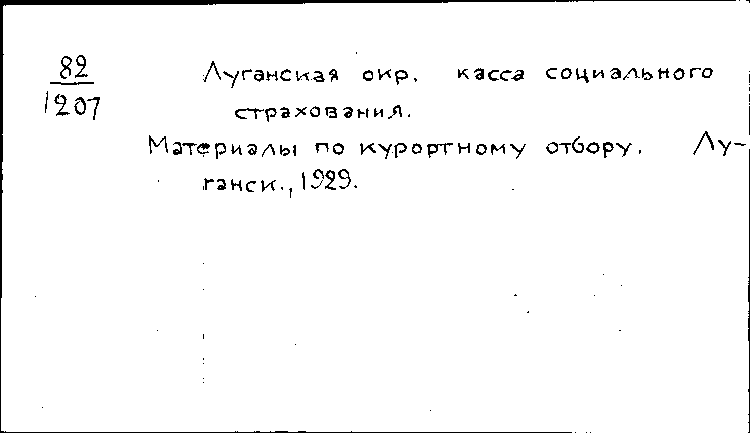 82
1207
Луганская окр. касса социального
страхования.
Материалы по курортному отбору. Лу-
ганск., 1929.